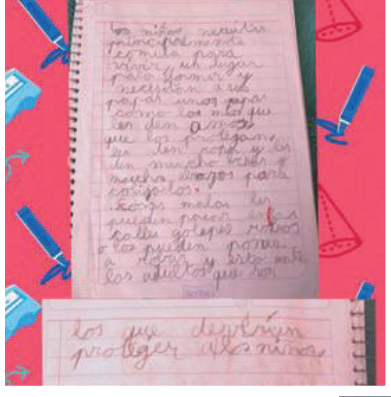 los niños necesitan
principalmente
comida para
vivir, un lugar
para dormir y
necesitan a sus
papas unos papas
como los mios que
les den amor
que los protegan
les den ropa y les
den mucho besos y
muchos abrazos para
cosas malas les
pueden pasar
calles golepes robos
o los pueden poner
a robar y esto ante
los adultos que son
los que deverian
proteger a los niños